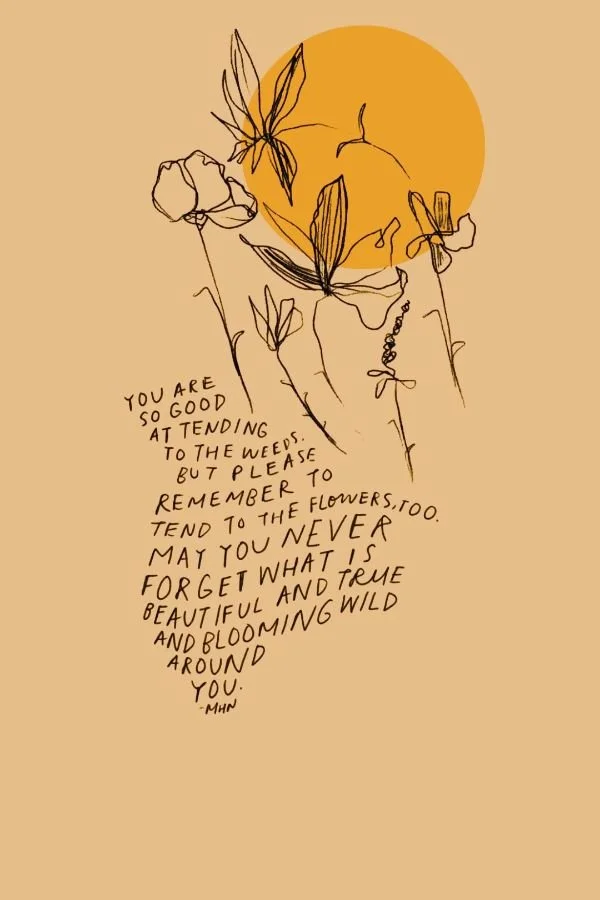 YOU ARE
SO GOOD
AT TENDING
TO THE WEEDS.
BUT PLEASE
REMEMBER TO
TEND TO THE FLOWERS, TOO.
MAY YOU NEVER
FORGET WHAT IS
BEAUTIFUL AND TRUE
AND BLOOMING WILD
AROUND
YOU.
-MHN